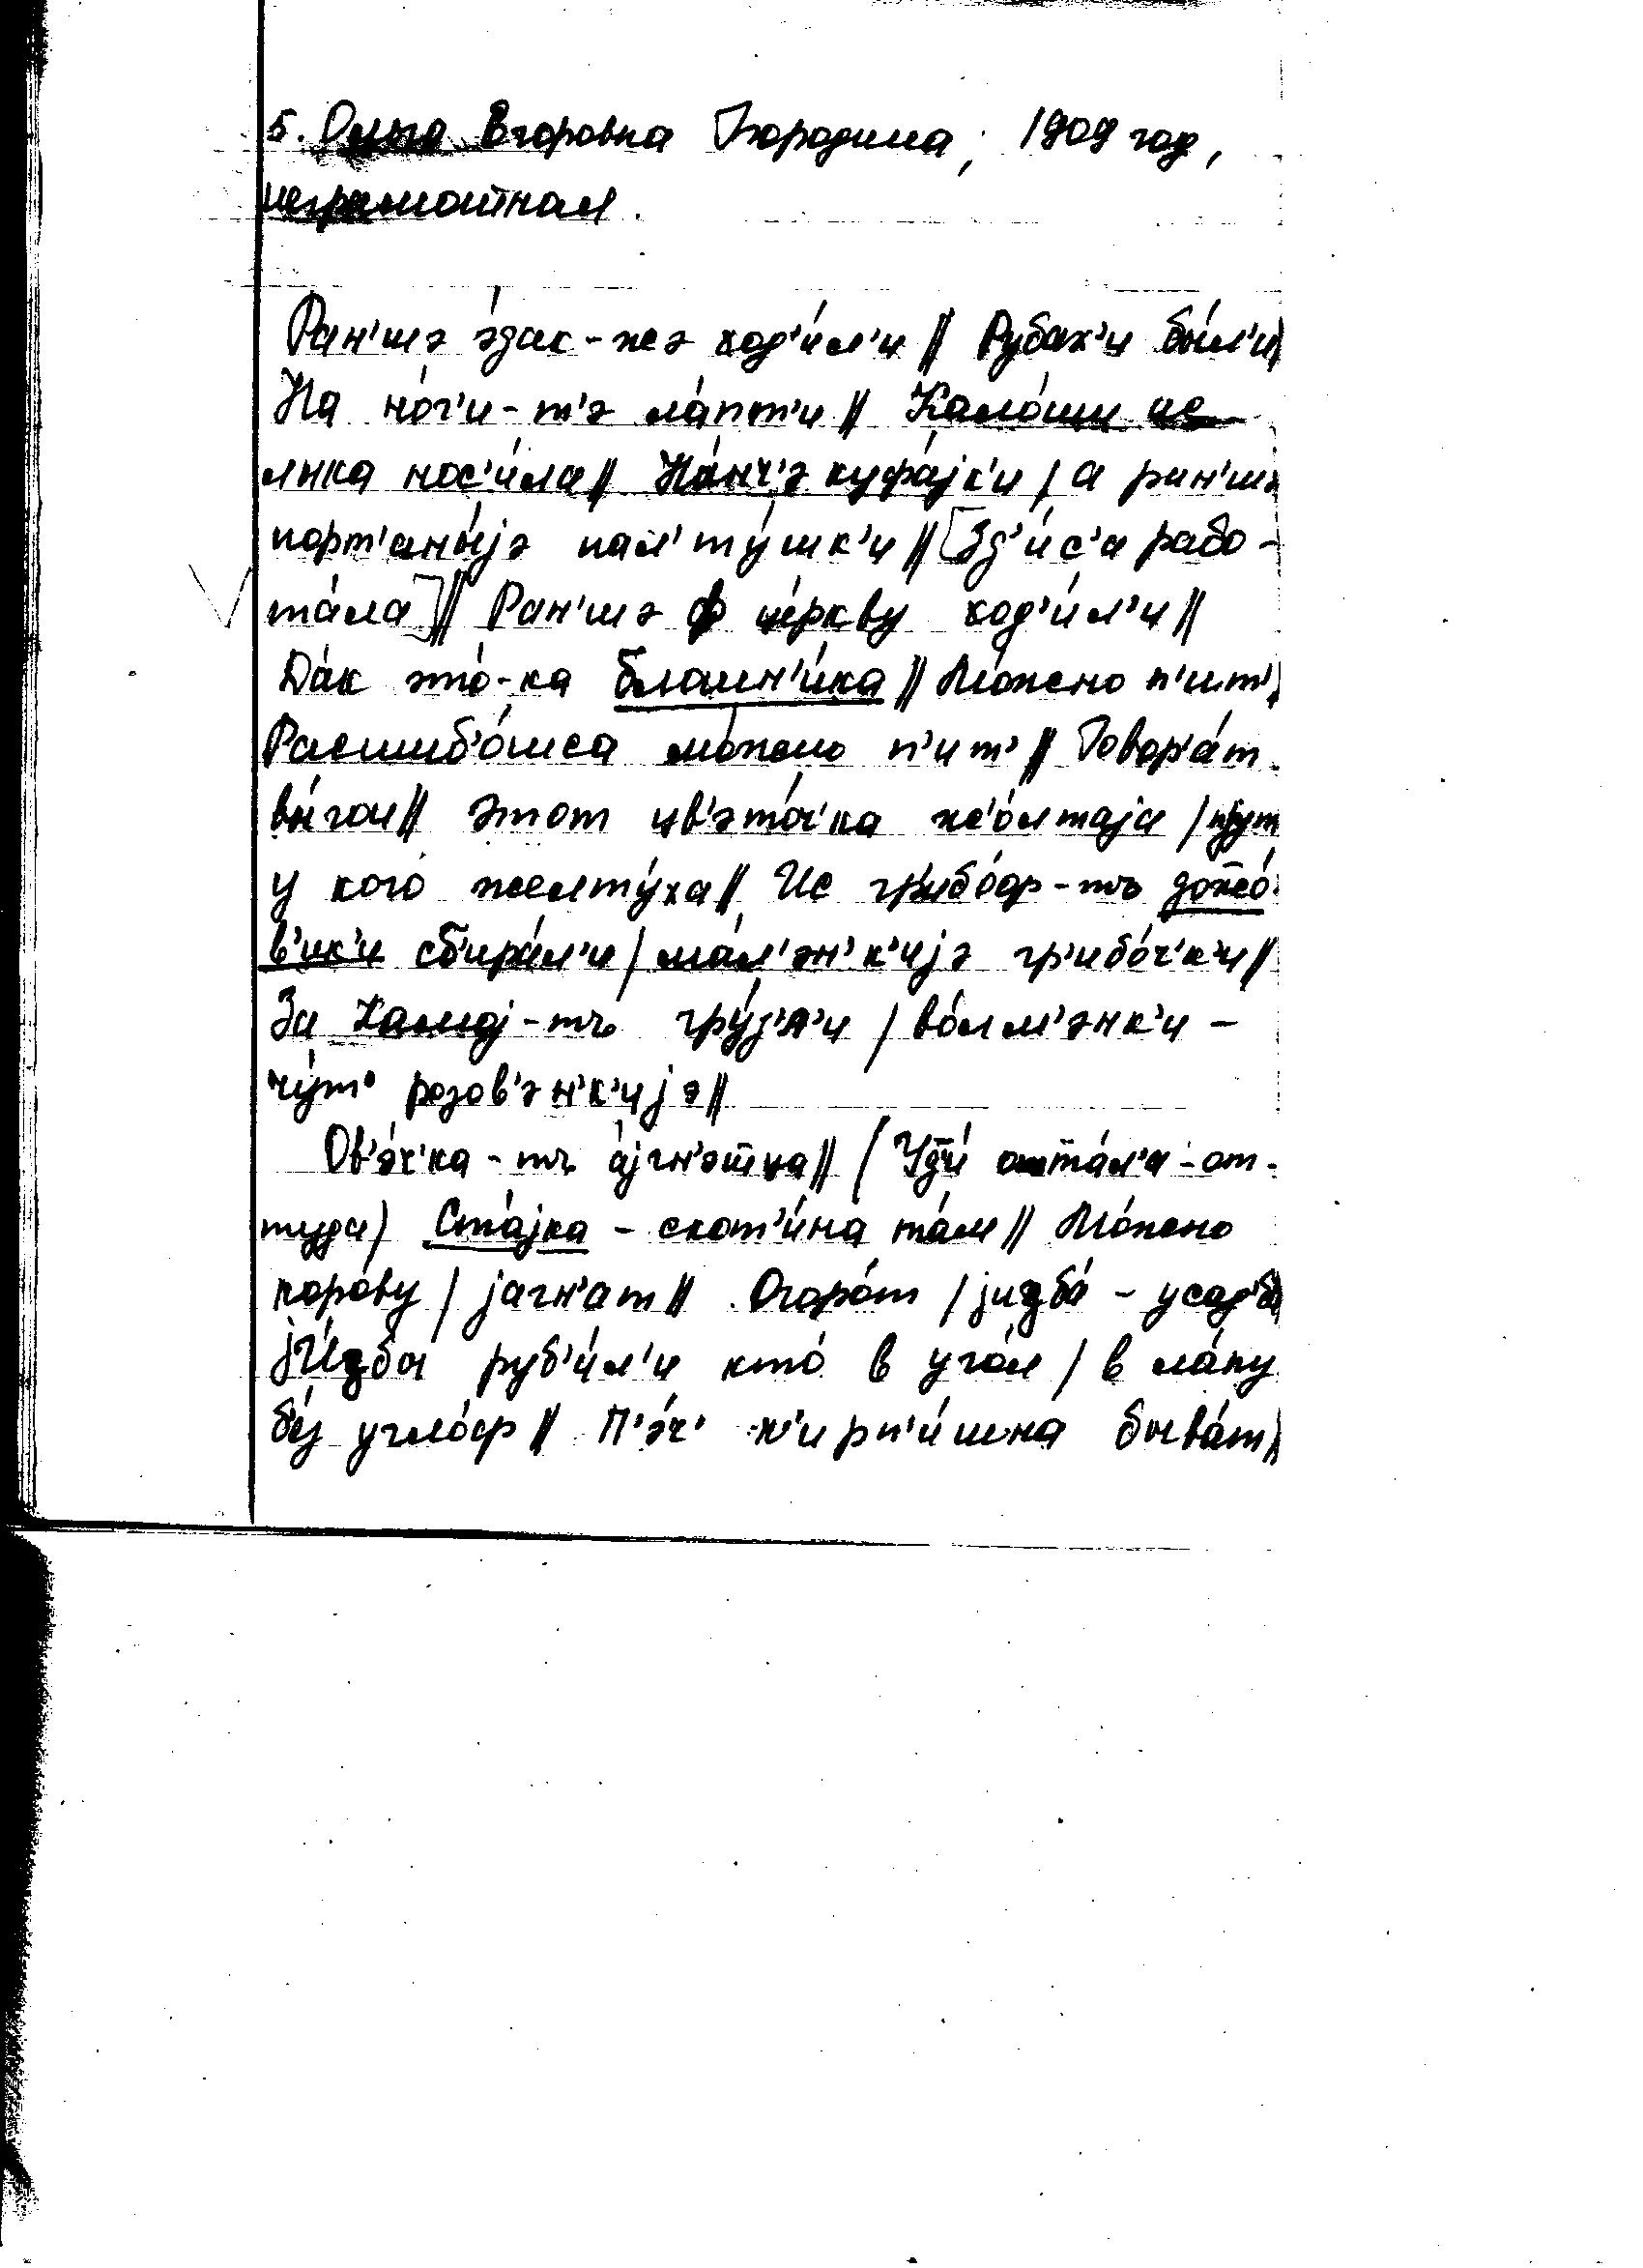 5. Ольга Егоровна Бородина, 1909 год,
неграмотная.
Ран'шэ э́дак-жэ ход'и́л'и // Рубах'и бы́л'и //
На но́г'и-т'э ла́пт'и // Кало́ши не
лика нос'и́ла // Но́нч'э куфа́jк'и / а ран'шэ
порт'аны́jэ пал'ту́шк'и // [Зд'и́с'а рабо-
та́ла] // Ран'шэ ф це́ркву ход'и́л'и //
Да́к это́-ка блошн'и́ка // Мо́жно п'ит' //
Расшиб'о́шса мо́жно п'ит' // Говор'а́т
вы́гон // Этот цв'это́ч'ка ж'о́лтаjа / пjут
у кого́ желту́ха // Ис грибо́ф-тъ дожо́-
в'ик'и сбира́л'и / ма́л'эн'к'иjэ гр'ибо́ч'к'и //
За Камоj-тъ гру́з'д'и / во́лм'энк'и –
чу́т' розов'эн'к'иjэ //
Ов'э́ч'ка-тъ аjгн'э́тца // (Уд'и́ отта́л'а - от-
туда) Ста́jка – скот'и́на та́м // Мо́жно
коро́ву / jагн'ат // Огоро́т / jизба́ – усад'ба
jИ́збы руб'и́л'и кто́ в уго́л / в ла́пу
бе́з угло́ф // П'э́ч' к'ирп'и́шна быва́т //